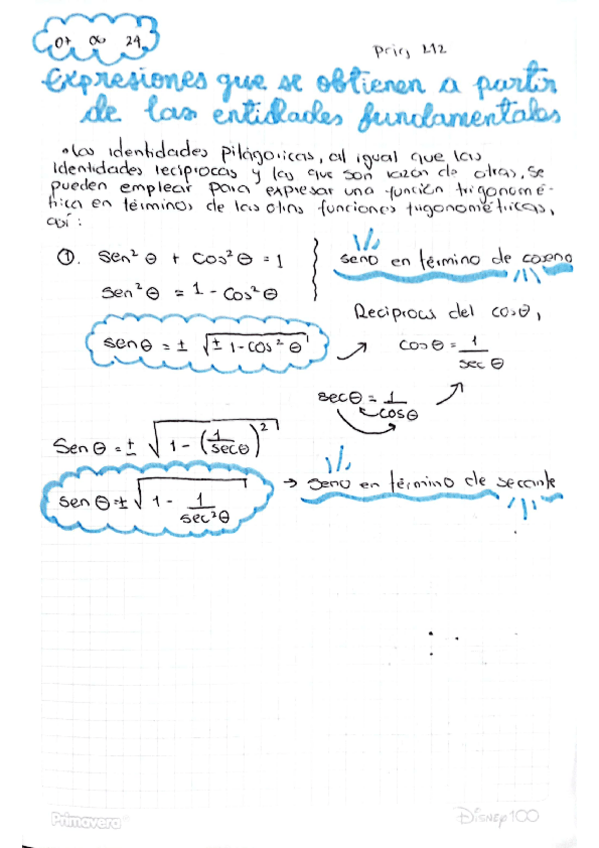 07 00 24
Pág 212
Expresiones que se obtienen a partir
de las entidades fundamentales
• Las identidades pitágoricas, al igual que las
identidades recíprocas y las que son razón de otras, se
pueden emplear para expresar una función trigonomé-
trica en términos de las otras funciones trigonométricas,
así:
①. Sen² θ + Cos² θ = 1
seno en término de coseno
Sen² θ = 1 - Cos² θ
Reciproca del cosθ,
sen θ = ± √± 1 - cos² θ
cos θ = 1/sec θ
secθ = 1/cosθ
Sen θ = ± √1 - (1/secθ)²
sen θ = ± √1 - 1/sec²θ
→ seno en término de secante
Primavera
DISNEY100